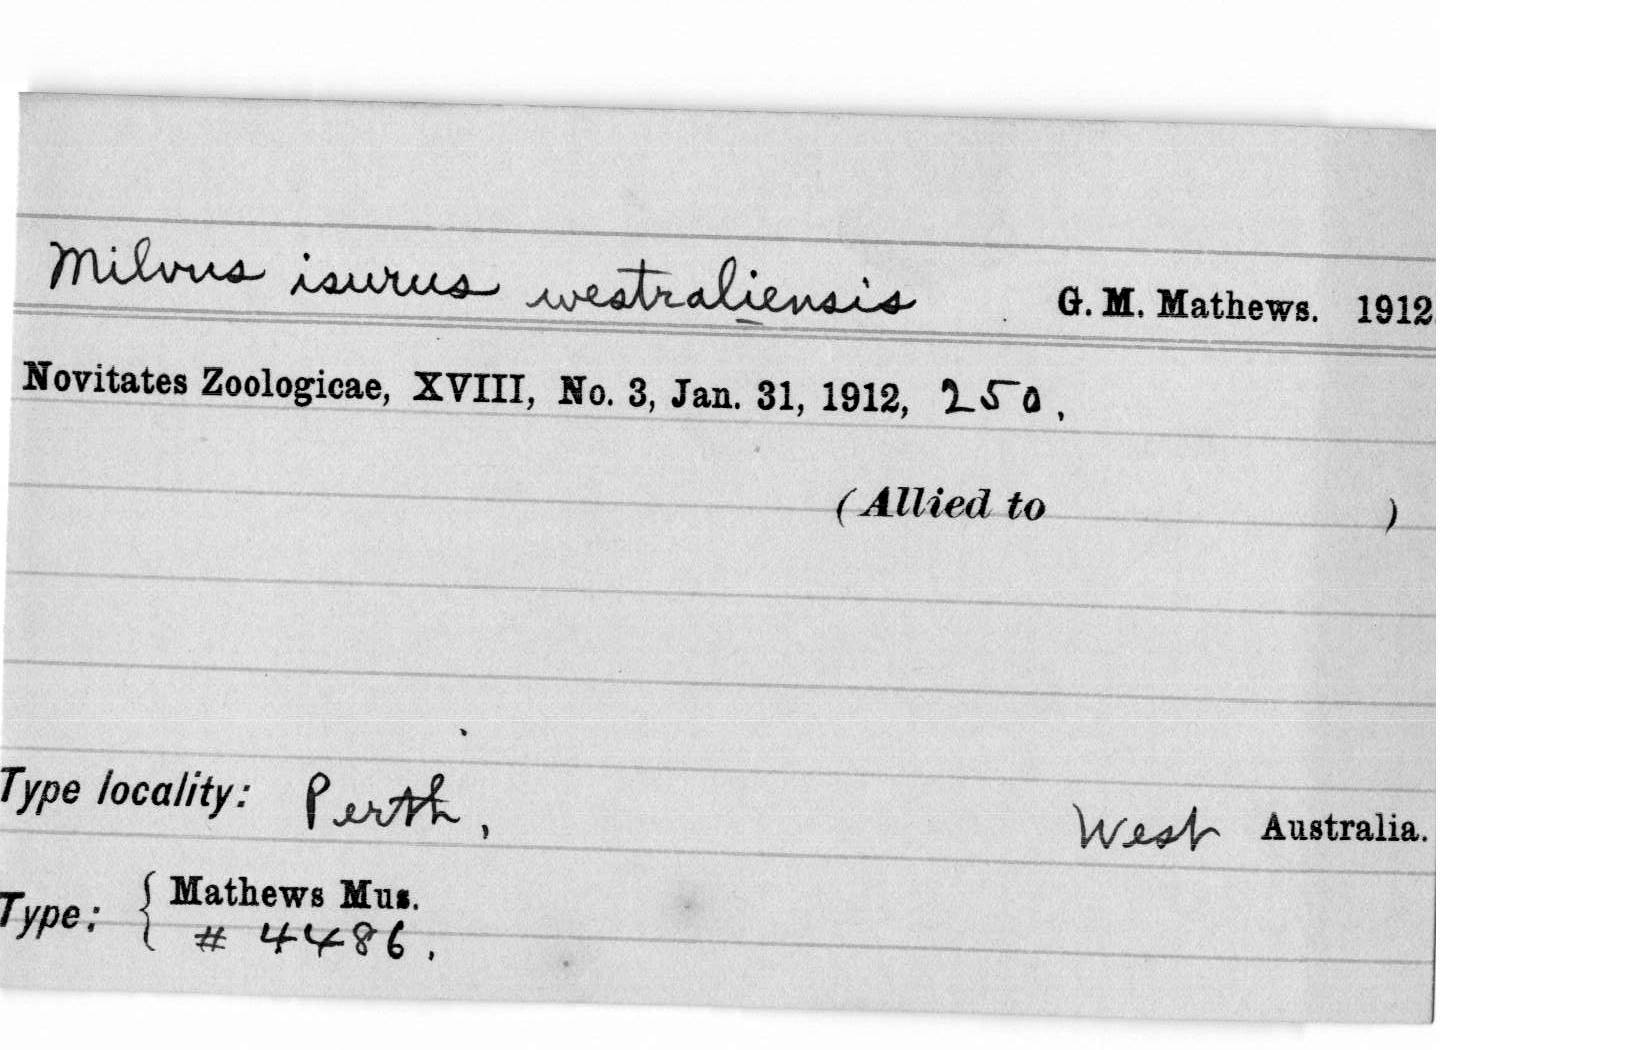 Milvus isurus westraliensis G. M. Mathews. 1912.
Novitates Zoologicae, XVIII, No. 3, Jan. 31, 1912, 250.
(Allied to )
Type locality: Perth, West Australia.
Type: { Mathews Mus.
# 4486.